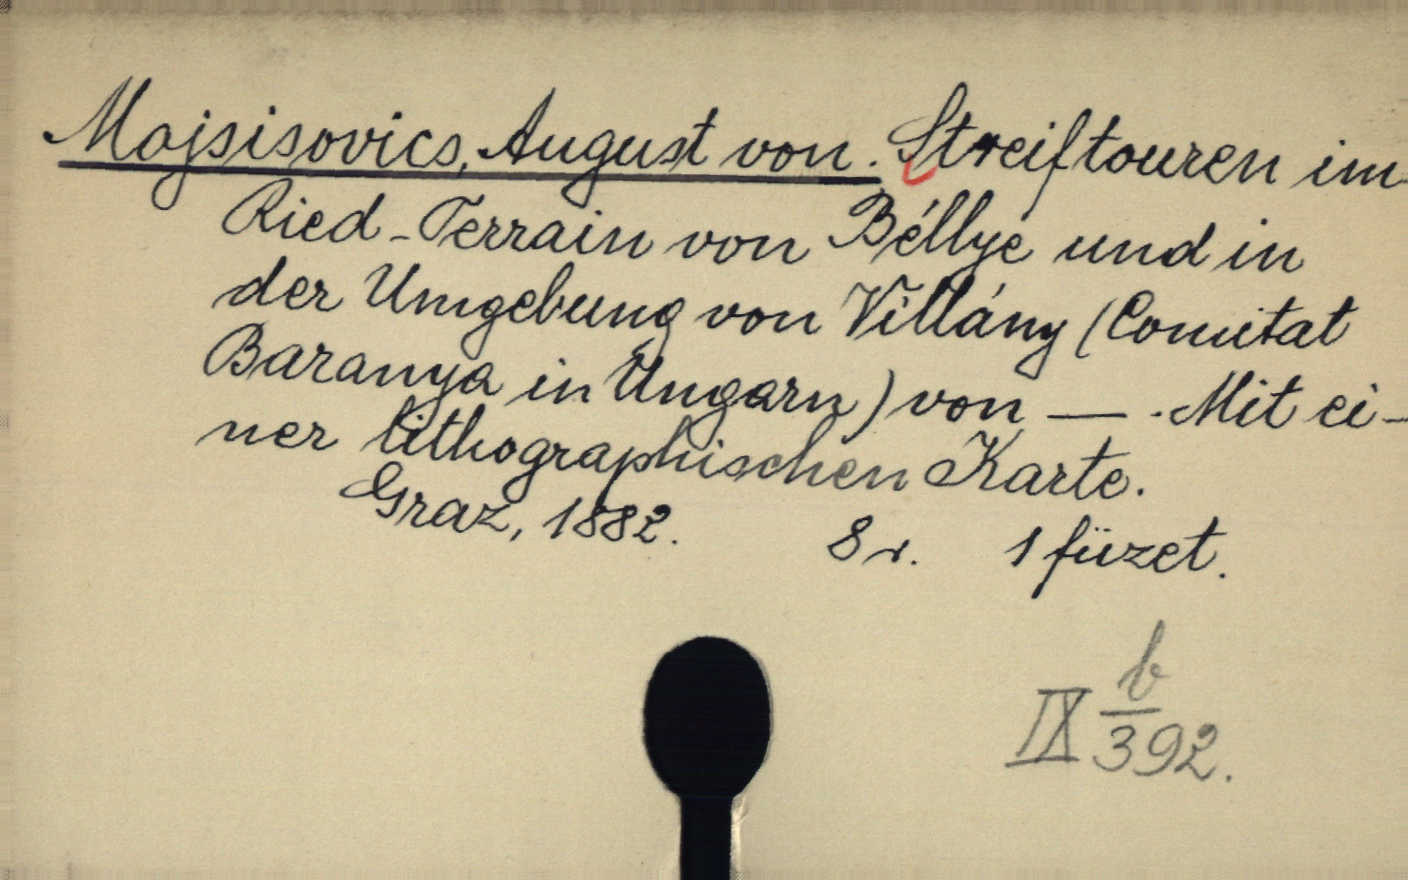 Mojsisovics, August von. Streiftouren im
Ried-Terrain von Béllye und in
der Umgebung von Villány (Comitat
Baranya in Ungarn) von — . Mit ei-
ner lithographischen Karte.
Graz, 1882. 8 r. 1 füzet.
IX b/392.